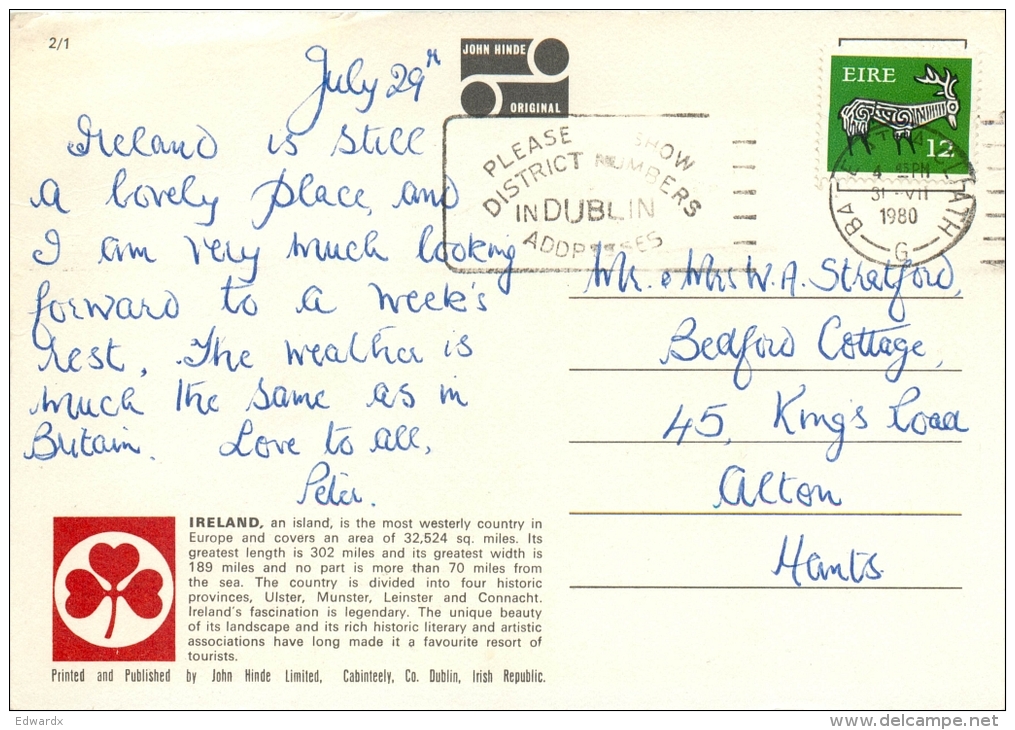 2/1
JOHN HINDE
ORIGINAL
EIRE
12
PLEASE SHOW
DISTRICT NUMBERS
IN DUBLIN
ADDRESSES
BAILE ÁTHA CLIATH
4 45PM
31 VII
1980
G
July 29th
Ireland is still
a lovely place, and
I am very much looking
forward to a week's
rest. The weather is
much the same as in
Britain. Love to all,
Peter.
Mr. & Mrs W. A. Stratford,
Bedford Cottage,
45, King's Road
Alton
Hants.
IRELAND, an island, is the most westerly country in
Europe and covers an area of 32,524 sq. miles. Its
greatest length is 302 miles and its greatest width is
189 miles and no part is more than 70 miles from
the sea. The country is divided into four historic
provinces, Ulster, Munster, Leinster and Connacht.
Ireland's fascination is legendary. The unique beauty
of its landscape and its rich historic literary and artistic
associations have long made it a favourite resort of
tourists.
Printed and Published by John Hinde Limited, Cabinteely, Co. Dublin, Irish Republic.
Edwardx
www.delcampe.net